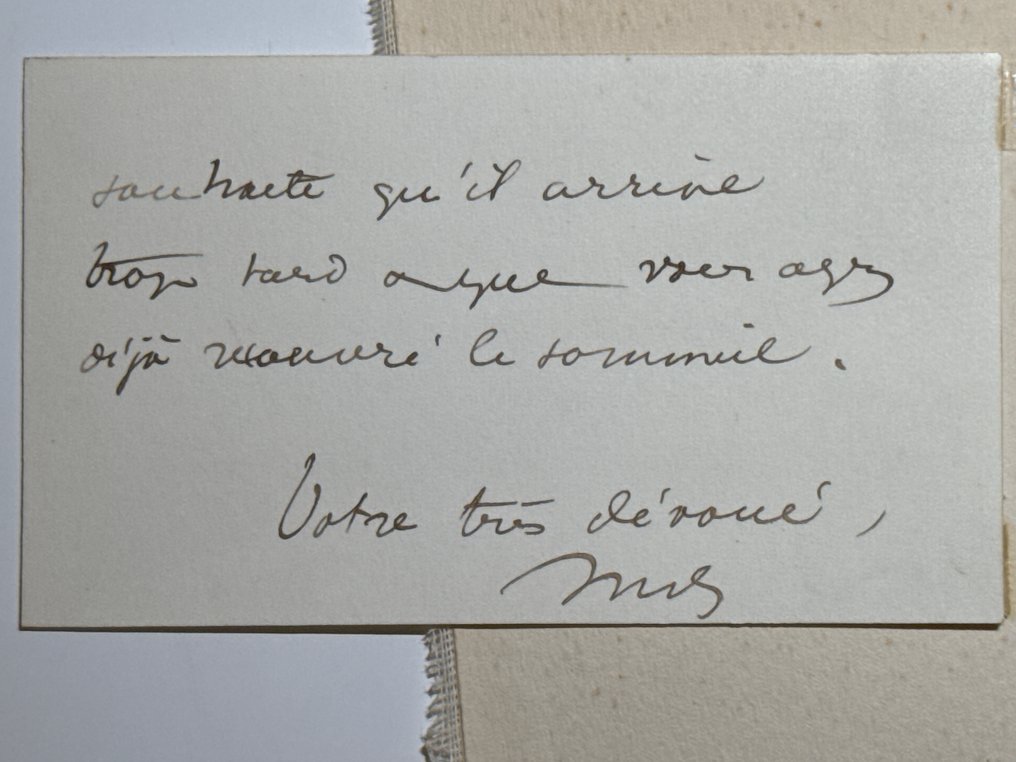 souhaite qu'il arrive
trop tard et que vous ayez
déjà recouvré le sommeil.
Votre très dévoué,